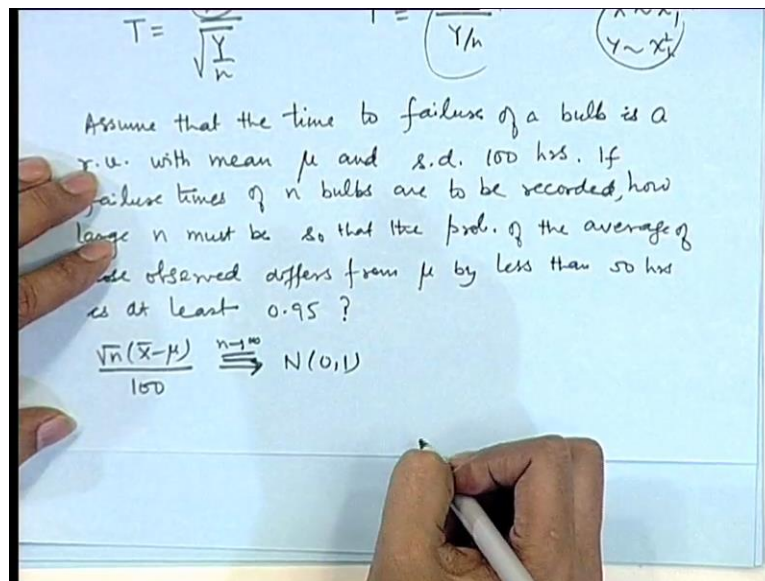 T = √Y/n T = Y/n Y ~ χ²
Assume that the time to failure of a bulb is a
r.v. with mean μ and s.d. 100 hrs. If
failure times of n bulbs are to be recorded, how
large n must be so that the prob. of the average of
observed differs from μ by less than 50 hrs
is at least 0.95 ?
√n(x̄-μ)/100 n→∞ ⟹ N(0,1)